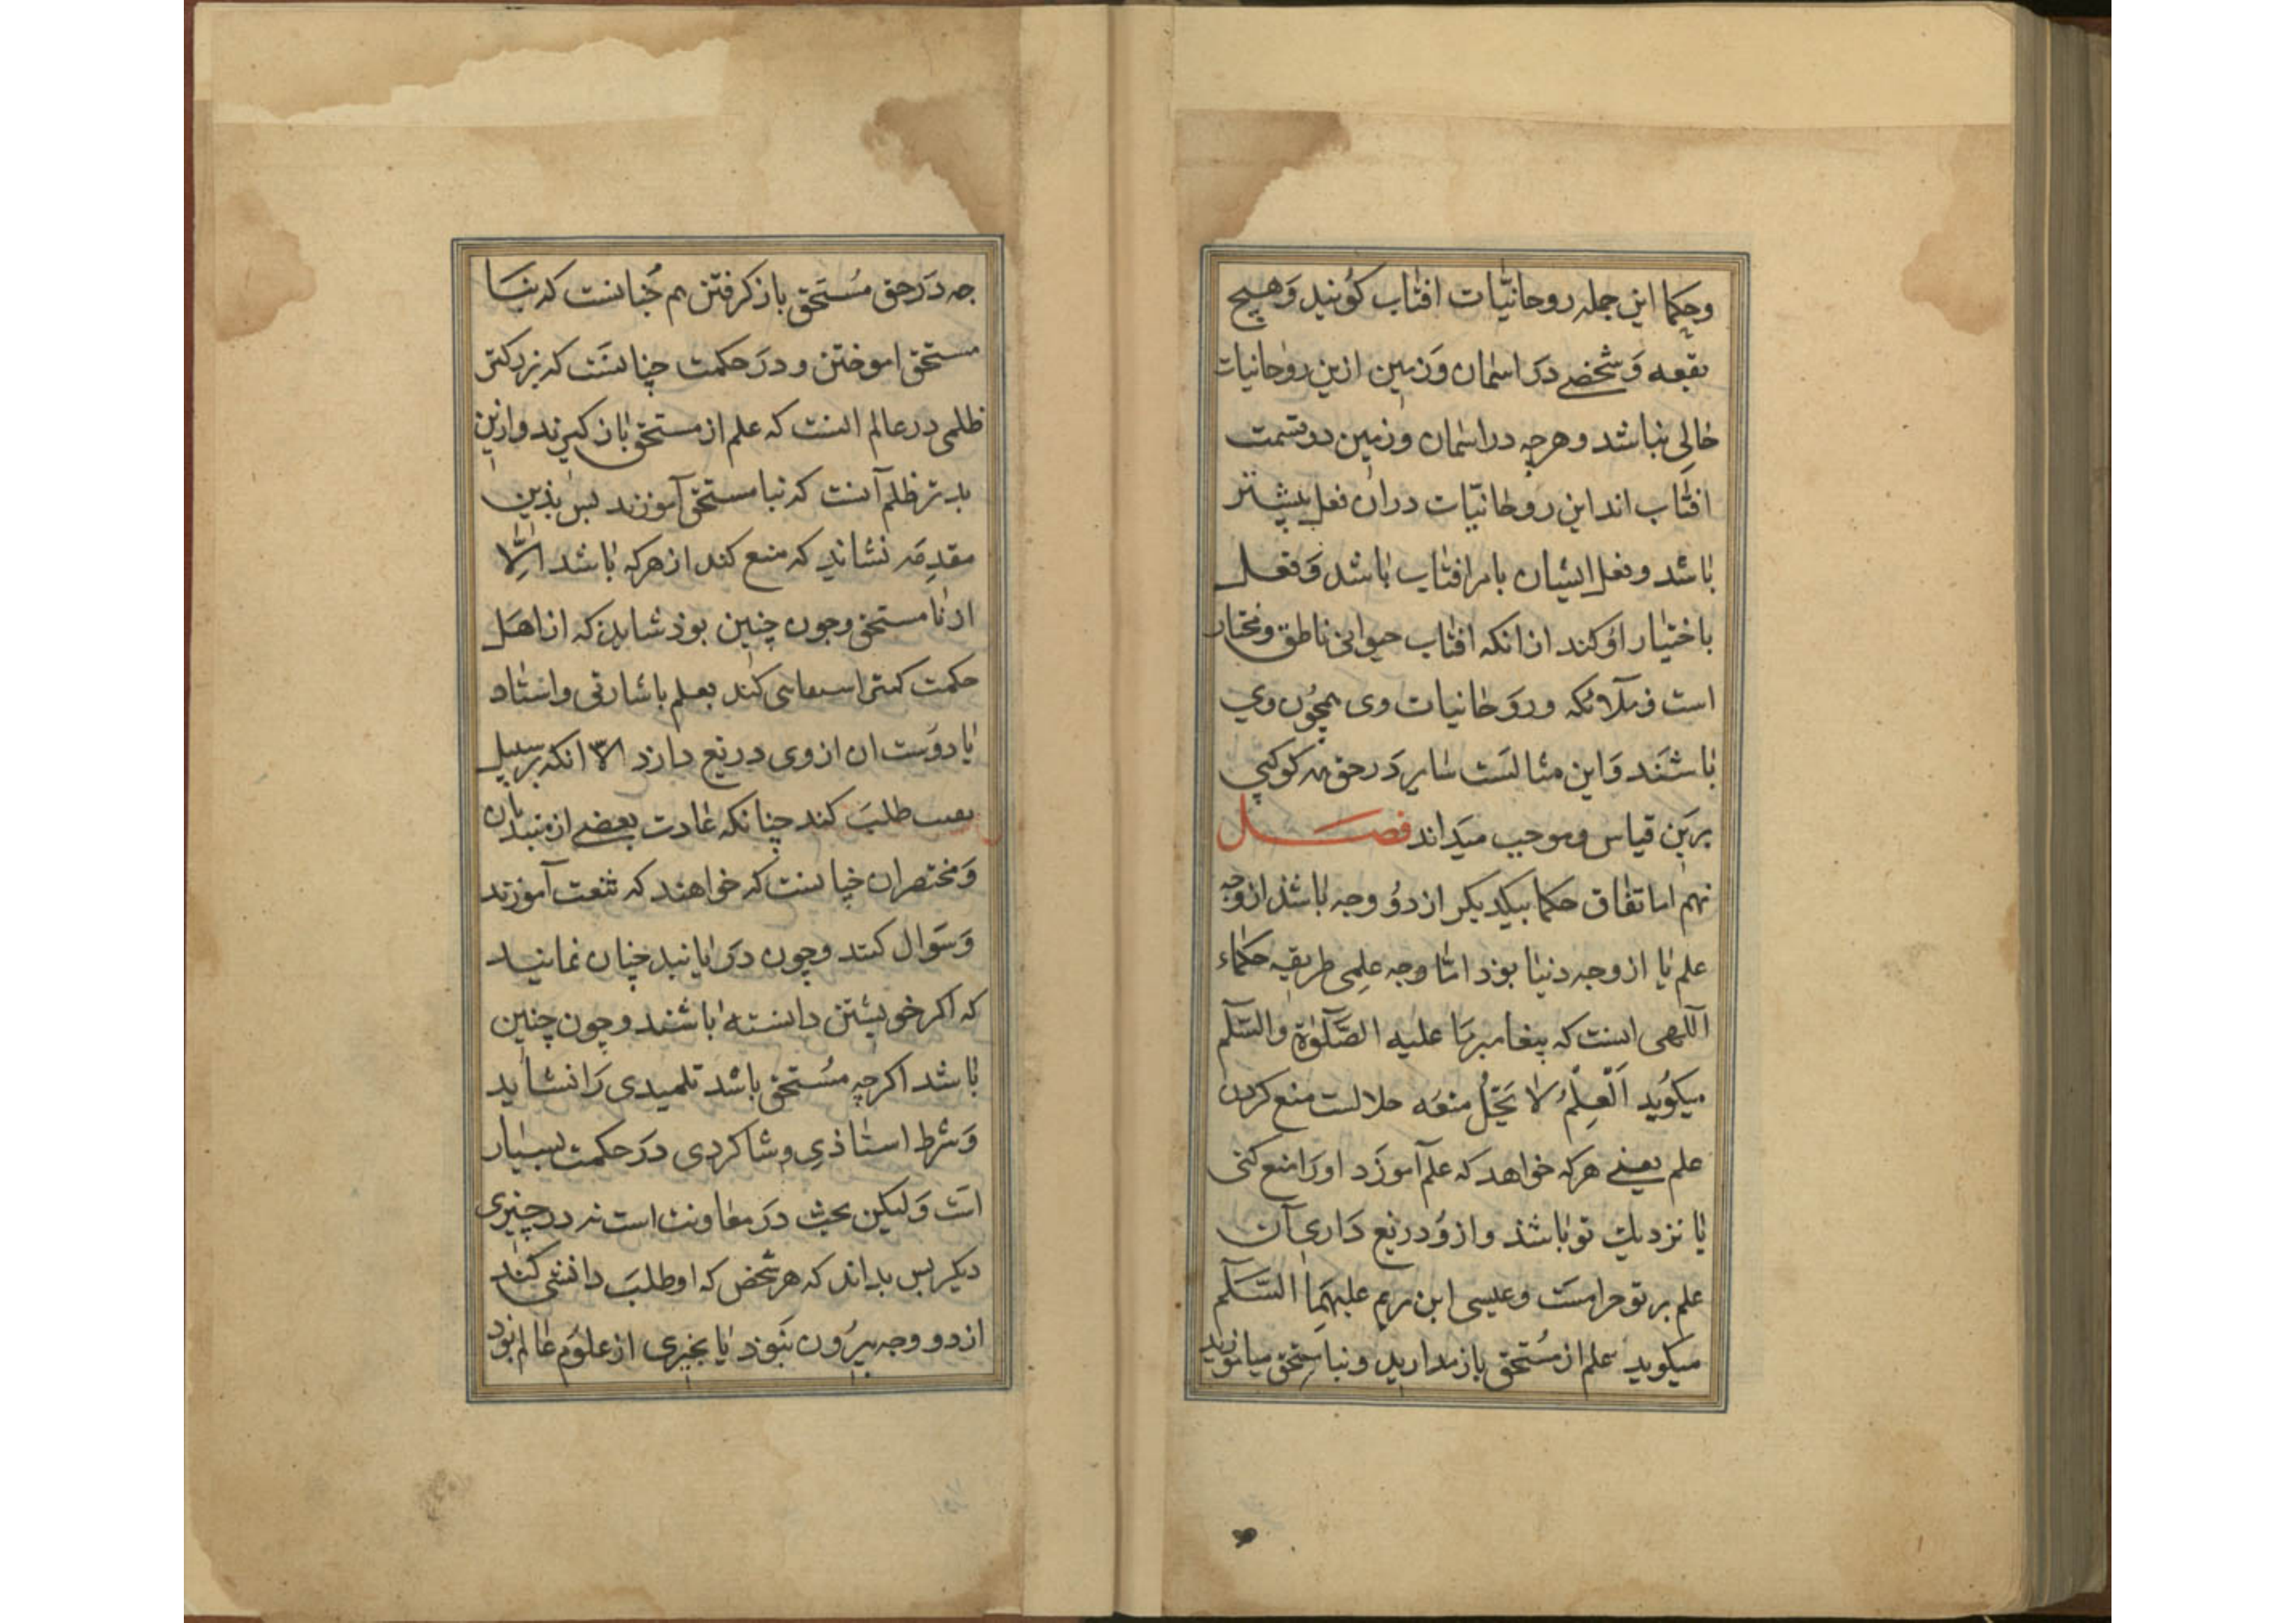 وحکما این جمله روحانیّات افتاب کویند وَهیچ
بقعه وَشخصے دَر اسمان وَزمین ازین روحانیات
خالی نباشد وهرچه دراسمان وزمین دوقسمت
افتاب اند این روحانیّات دران فعل بیشتر
باشد وفعل ایشان بامر افتاب باشد وَفعل
باختیار اوکند ازانکه افتاب حیوانی ناطق ومختار
است وملآئکه وروَحانیات وی همچُون وی
باشَند وَاین مثالَست سایر دَرحق هر کوکبی
برین قیاس وموجب میَداند فصَل
نهم اما تفاق حکما بیکدیکر از دوُ وجه باشذ از وجه
علم یا از وجه دنیا بوَد امّا وجه علمی طریقه حکماء
آللهی اىست که پیغامبرما علیه الصّلوٰة والسّلم
میکوُید اَلعِلمُ لا یَحِلُّ منعُه حلالست منع کردن
علم یعنے هرکه خواهد که علم آموزَد اورَا منع کنی
یا نزدیك تو باشذ و از وُ دریغ دَاری آن
علم بر تو حرامست وعیسی ابن مریم علیهمَا السَّلم
میکوید علم از مُستحق باز مدارید و بنامستحق میاموزید
جه دَرحق مُستَحق بازکرفتن هم چُنانست که بنا
مستحق اموختن ودرَ حکمت چنانسَت که بزرکتر
ظلمی درعالم انست که علم از مستحق بازکیرند وازین
بدترظلم آنست که بنامستحق آموزند پس بذین
مقدِمَه نشاید که منع کند از هرکه باشد اِلّا
از نامستحق وجون چنین بوذ شاید که از اهَل
حکمت کسی استعانتی کند بعلم باشارتی واستاد
یا دوُست ان ازوی دریغ دارد الا انکه برسبیل
تعنت طلبَ کند چنانکه عادت بعضے از مبتدیان
وَمختصران چنانست که خواهند که صنعت آموزند
وَسَوال کنند وچون دَریابند چنان نمایند
که اکر خویشتن دانسته باشند وچون چنین
باشد اکرچه مُستحق باشد تلمیدی رَا نشاید
وَشرط استاذیِ وشاکردی درَحکمت بسیار
است وَلیکن بحث درَ معاونت است نه درچیزی
دیکر پس بداند که هرشخص که اوطلبَ دانشی کند
از دو وجه بیرُون نبَوذ یا بچیزی از علوُم عالم بوَد